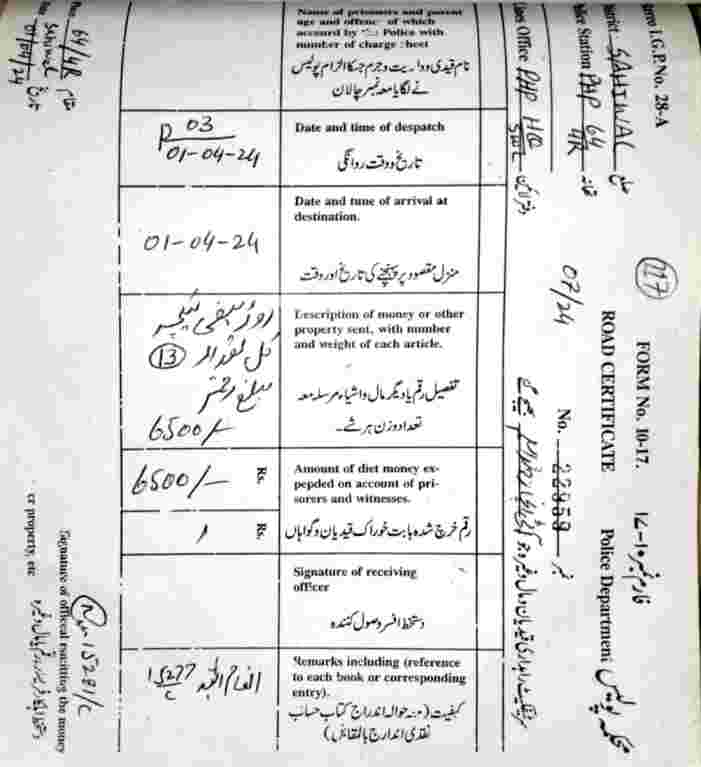 Serve I.G.P. No. 28-A
FORM No. 10-17.
فارم نمبر ۱۰-۱۷
117
ROAD CERTIFICATE
Police Department
محکمہ پولیس
District SAHIWAL ضلع
Police Station PHP 64/4R تھانہ
Lines Office PHP HQ SWL دفتر لائن
07/24
No. 22959 نمبر
Name of prisoners and parent
age and offence of which
accused by the Police with
number of charge sheet
نام قیدی و ولدیت و جرم جسکا الزام پولیس
نے لگایا معہ نمبر چالان
Date and time of despatch
تاریخ و وقت روانگی
R 03
01-04-24
Date and tune of arrival at
destination.
منزل مقصود پر پہنچنے کی تاریخ اور وقت
01-04-24
Description of money or other
property sent, with number
and weight of each article.
تفصیل رقم یا دیگر مال و اشیاء مرسلہ معہ
تعداد وزن ہر شے۔
روڈ سیفٹی ٹیکچر
کل تعداد 13
مبلغ رقم
6500/-
Amount of diet money ex-
pepded on account of pri-
sorers and witnesses.
رقم خرچ شدہ بابت خوراک قیدیان و گواہاں
Rs. 6500/-
Rs.
Signature of receiving
officer
دستخط افسر وصول کنندہ
Remarks including (reference
to each book or corresponding
entry).
کیفیت (معہ حوالہ اندراج کتاب حساب
نقدی اندراج بالمقابل)
15277/C
64/4R مقام
Sahiwal
01/04/24 تاریخ
15281/C
Signature of officeal remitting the money
or property, etc